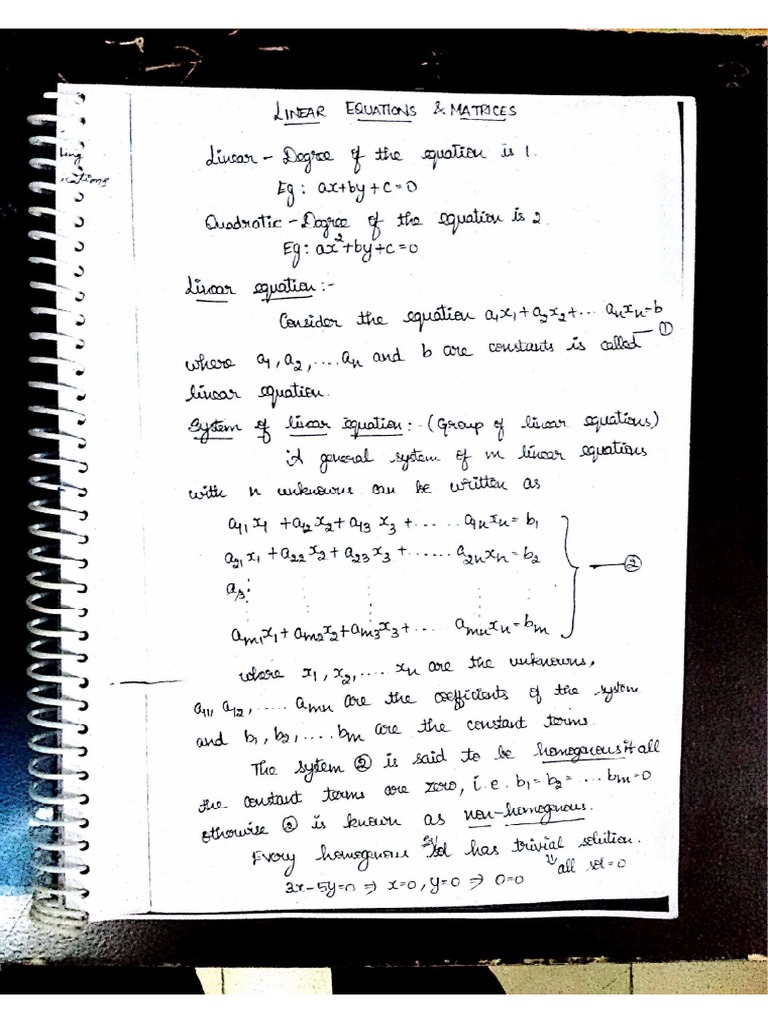 LINEAR EQUATIONS & MATRICES
Linear - Degree of the equation is 1.
Eg: ax+by+c=0
Quadratic - Degree of the equation is 2
Eg: ax²+by+c=0
Linear equation:-
Consider the equation a₁x₁+a₂x₂+... aₙxₙ=b
—①
where a₁, a₂, ....aₙ and b are constants is called
linear equation.
System of linear equation:- (Group of linear equations)
A general system of m linear equations
with n unknowns can be written as
a₁₁x₁ +a₁₂x₂+a₁₃x₃+...... a₁ₙxₙ=b₁
a₂₁x₁+a₂₂x₂+a₂₃x₃+...... a₂ₙxₙ=b₂
—②
a₃:
aₘ₁x₁+aₘ₂x₂+aₘ₃x₃+.... aₘₙxₙ=bₘ
where x₁, x₂, .... xₙ are the unknowns,
a₁₁, a₁₂, ..... aₘₙ are the coefficients of the system
and b₁, b₂, .... bₘ are the constant terms.
The system ② is said to be homogenous if all
the constant terms are zero, i.e. b₁=b₂=...bₘ=0
otherwise ② is known as non-homogenous.
Every homogenous sol has trivial solution.
⇓ all sol=0
3x-5y=0 ⇒ x=0, y=0 ⇒ 0=0